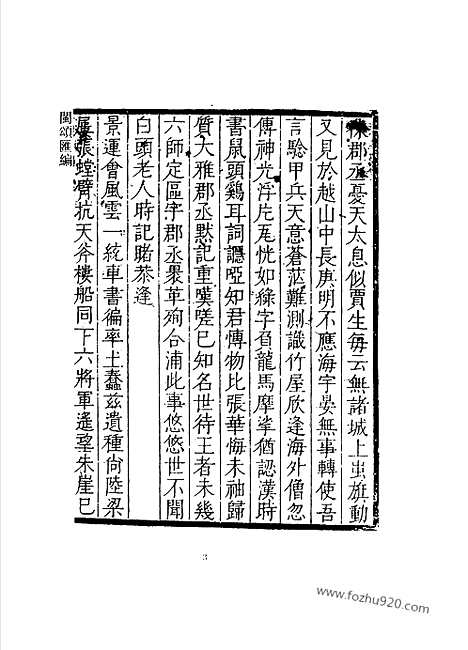 陳郡丞憂天太息似賈生每云無諸城上蚩旗動
又見於越山中長庚明不應海宇晏無事轉使吾
言驗甲兵天意蒼茫難測識竹屋欣逢海外僧忽
傳神光浮片瓦恍如綠字負龍馬摩挲猶認漢時
書鼠頭鷄耳詞讔啞知君愽物比張華悔未袖歸
質大雅郡丞默記重嘆嗟已知名世待王者未幾
六師定區宇郡丞褁革殉合浦此事悠悠世不聞
白頭老人時記睹恭逢
景運會風雲一統車書徧率土蠢玆遺種尙陸梁
張螳臂抗天斧樓船同下六將軍遙望朱崖已
閩頌匯編
3
www.fozhu920.com